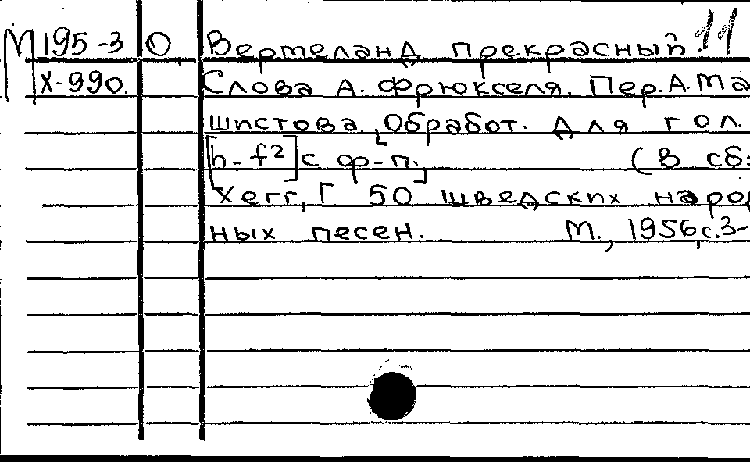 М 195-3 О Вертеланд прекрасный. 11
Х-990. Слова А. Фрюкселя. Пер. А. Ма
шистова. Обработ. для гол.
[h-f²] с ф-п. (В сб:
Хегг, Г 50 шведских народ
ных песен. М., 1956, с.3-